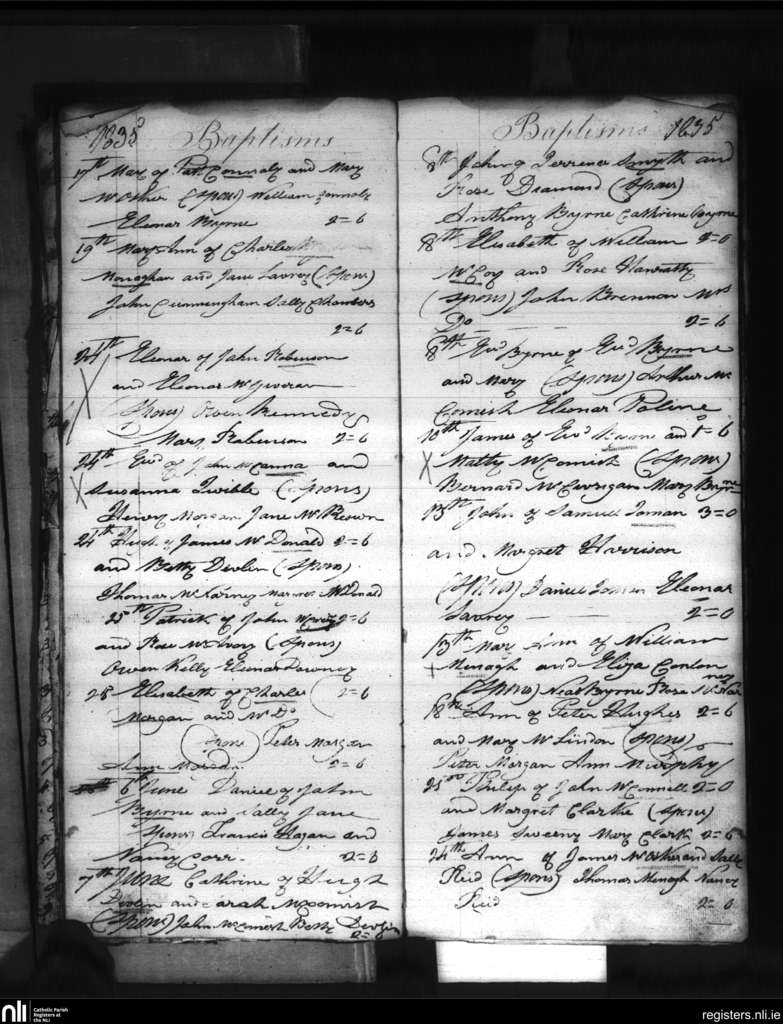 1835 Baptisms
17th Mary of Patt Connoly and Mary
McOsker (Spons) William Connoly
Elienar Byrne 2=6
19th Mary Ann of Charles
Monaghan and Jane Lavrey (Spons)
John Cunningham Sally Chambers
2=6
24th Elienar of John Robinson
and Elienar
(Spons) Owen Kennedy
Mary Robinson 2=6
24th Edwd of John McCanna and
Susanna Twible (Spons)
Henry Morgan Jane McKeown
24th Hugh of James McDonald 2=6
and Betty Devlin (Spons)
Thomas McLarney McDonald
25th Patrick of John 2=6
and Rose McIvory (Spons)
Owen Kelly Elienar Downey
28 Elisabeth of Charles 2=6
Morgan and Do
Peter Morgan
Ann 2=6
6th June Daniel of John
Byrne and Sally Jane
Spons Francis Hagan and
Nancy Corr 2=6
7th June Cathrine of Hugh
Devlin and Sarah McComish
(Spons) John McComish Betty Devlin
2=
Baptisms 1835
8th John of Terrence Smyth and
Rose Diamond (Spons)
Anthony Byrne Cathrine Byrne
8th Elisabeth of William 2=0
McCoy and Rose Hanratty
(Spons) John Brennon Mrs
Do 2=6
8th Edwd Byrne of Edwd Byrne
and Mary (Spons) Arthur Mc
Comish Elienar
10th James of Edwd and 1=6
Matty McComish (Spons)
Bernard Mary Byrne
13th John of Samuel 3=0
and Margret Harrison
(Spons) Daniel Elienar
Lavrey 2=0
13th Mary Ann of William
Menagh and Eliza Conlon
(Spons) Neal Byrne Rose
18th Ann of Peter Hughes 2=6
and Mary McLindon (Spons)
Peter Morgan Ann Murphy
23 Philip of John McConnell 2=0
and Margret Clarke (Spons)
James Sweeny Mary Clark 2=6
24th Ann of James McOsker and Sally
Reid (Spons) Thomas Menagh Nancy
Reid 2=6
nli
Catholic Parish
Registers at
the NLI
registers.nli.ie